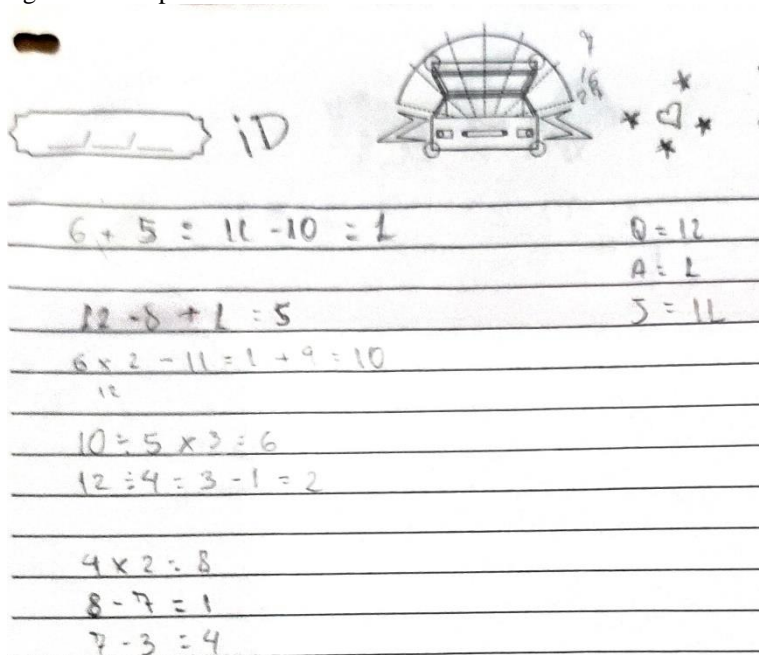 iD
6 + 5 = 11 - 10 = 1
Q = 12
A = 1
J = 11
12 - 8 + 1 = 5
6 x 2 - 11 = 1 + 9 = 10
12
10 ÷ 5 x 3 = 6
12 ÷ 4 = 3 - 1 = 2
4 x 2 = 8
8 - 7 = 1
7 - 3 = 4